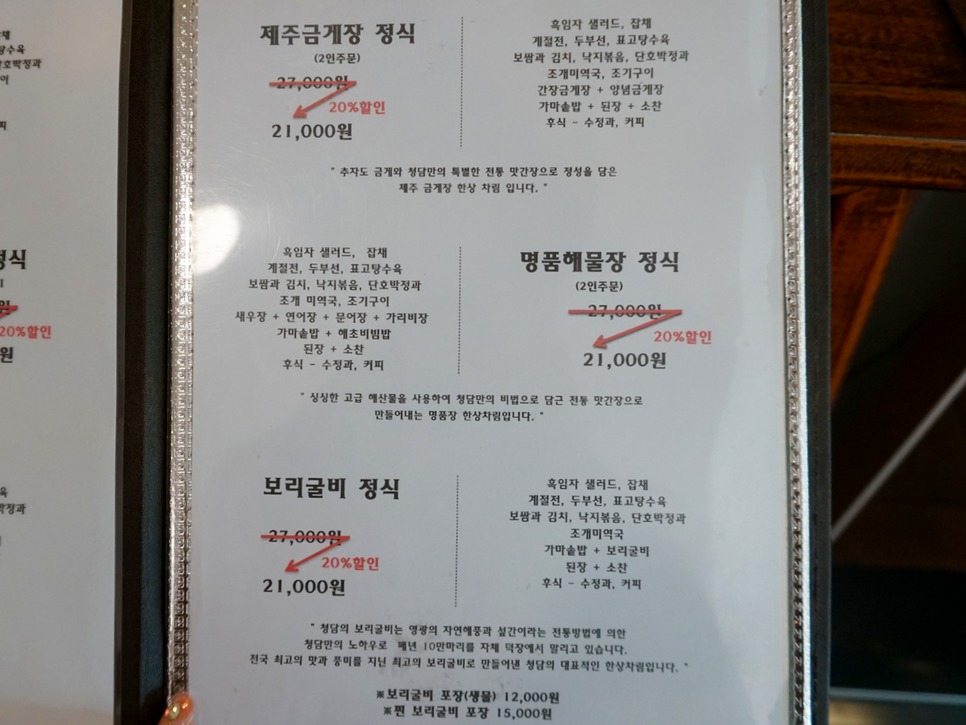 제주금게장 정식
(2인주문)
27,000원
20%할인
21,000원
흑임자 샐러드, 잡채
계절전, 두부선, 표고탕수육
보쌈과 김치, 낙지볶음, 단호박정과
조개미역국, 조기구이
간장금게장 + 양념금게장
가마솥밥 + 된장 + 소찬
후식 - 수정과, 커피
" 추자도 금게와 청담만의 특별한 전통 맛간장으로 정성을 담은
제주 금게장 한상 차림 입니다. "
흑임자 샐러드, 잡채
계절전, 두부선, 표고탕수육
보쌈과 김치, 낙지볶음, 단호박정과
조개 미역국, 조기구이
새우장 + 연어장 + 문어장 + 가리비장
가마솥밥 + 해초비빔밥
된장 + 소찬
후식 - 수정과, 커피
명품해물장 정식
(2인주문)
27,000원
20%할인
21,000원
" 싱싱한 고급 해산물을 사용하여 청담만의 비법으로 담근 전통 맛간장으로
만들어내는 명품장 한상차림입니다. "
보리굴비 정식
27,000원
20%할인
21,000원
흑임자 샐러드, 잡채
계절전, 두부선, 표고탕수육
보쌈과 김치, 낙지볶음, 단호박정과
조개미역국
가마솥밥 + 보리굴비
된장 + 소찬
후식 - 수정과, 커피
" 청담의 보리굴비는 영광의 자연해풍과 섶간이라는 전통방법에 의한
청담만의 노하우로 매년 10만마리를 자체 덕장에서 말리고 있습니다.
전국 최고의 맛과 풍미를 지닌 최고의 보리굴비로 만들어낸 청담의 대표적인 한상차림입니다. "
※보리굴비 포장(생물) 12,000원
※찐 보리굴비 포장 15,000원
20%할인